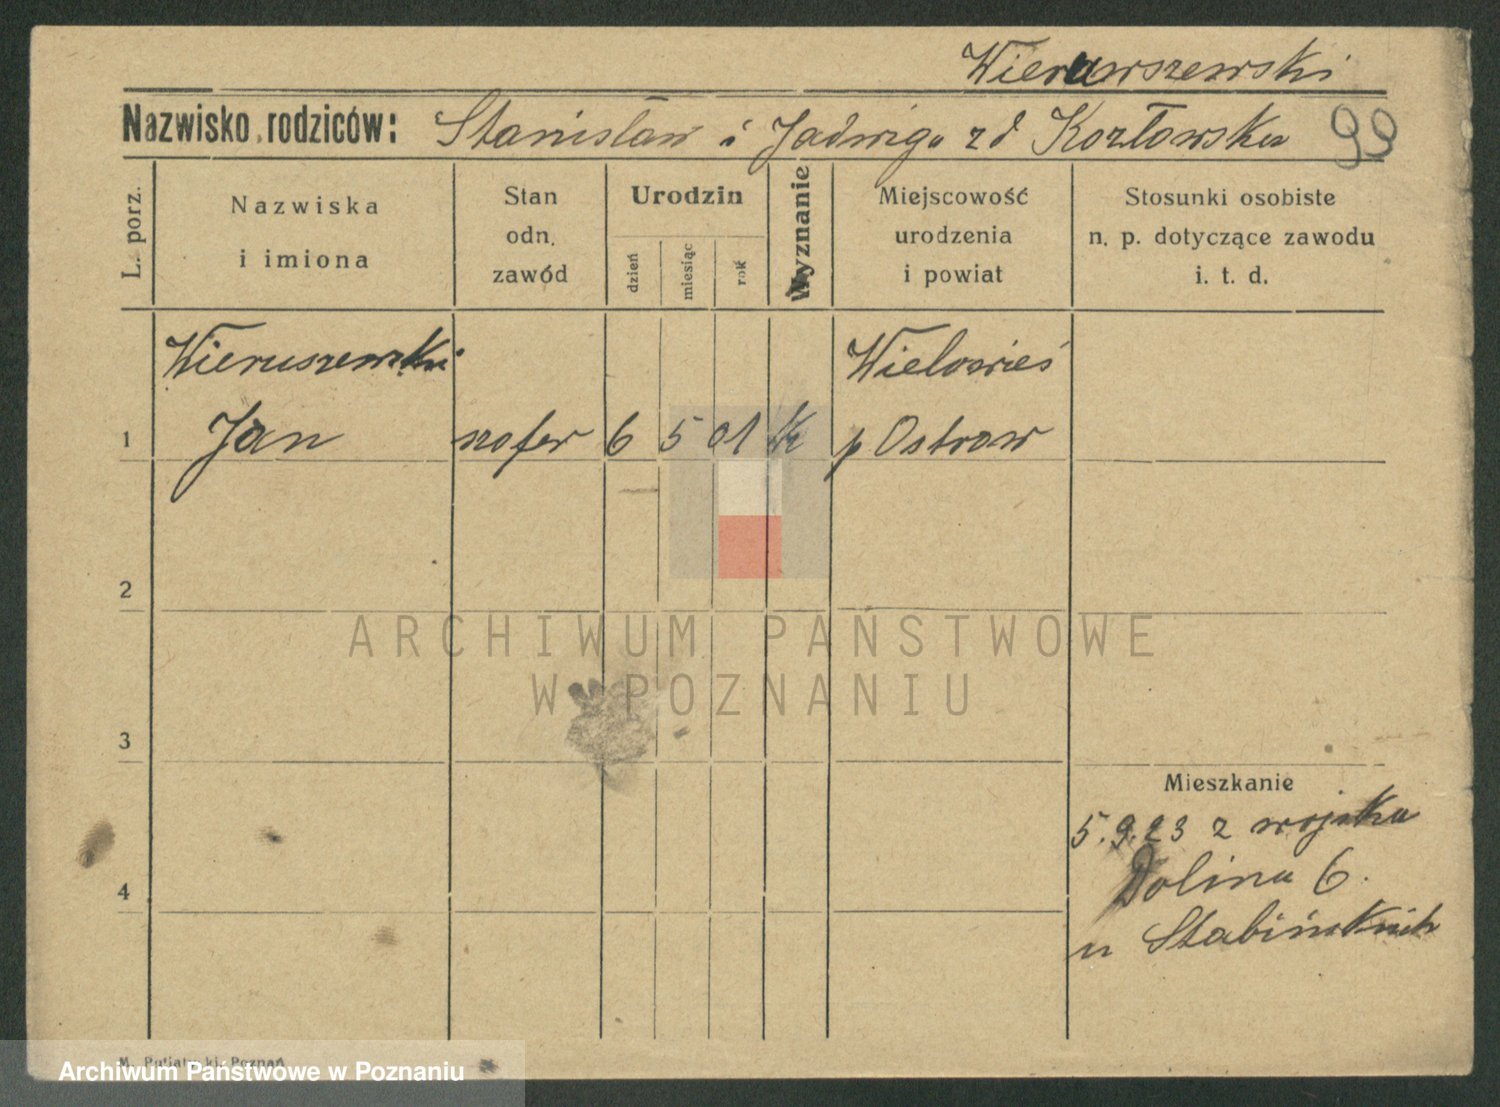 Wieruwszewski
Nazwisko rodziców: Stanisław i Jadwiga zd Kozłowska 99
L. porz.
Nazwiska
i imiona
Stan
odn.
zawód
Urodzin
dzień
miesiąc
rok
Wyznanie
Miejscowość
urodzenia
i powiat
Stosunki osobiste
n. p. dotyczące zawodu
i. t. d.
Wieruszewski Wielowieś
1 Jan szofer 6 5 01 K p Ostrow
2
ARCHIWUM PAŃSTWOWE
W POZNANIU
3
Mieszkanie
5.9.23 z wojska
Dolina 6.
4
u Stabińskich
M. Poznań
Archiwum Państwowe w Poznaniu